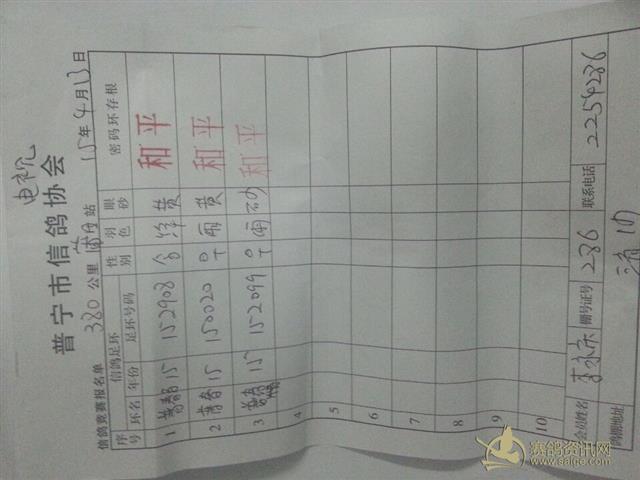 电视
普宁市信鸽协会
信鸽竞赛报名单 380公里 站 15年4月13日
序号 信鸽足环 性别 羽色 眼砂 密码环存根
环名 年份 足环号码
1 普春 15 152908 黄 和平
2 普春 15 150020 雨 黄 和平
3 普春 15 152099 雨 砂 和平
4
5
6
7
8
9
10
会员姓名 李 棚号证号 286 联系电话 2254286
鸽棚地址
赛鸽资讯网
www.saige.com